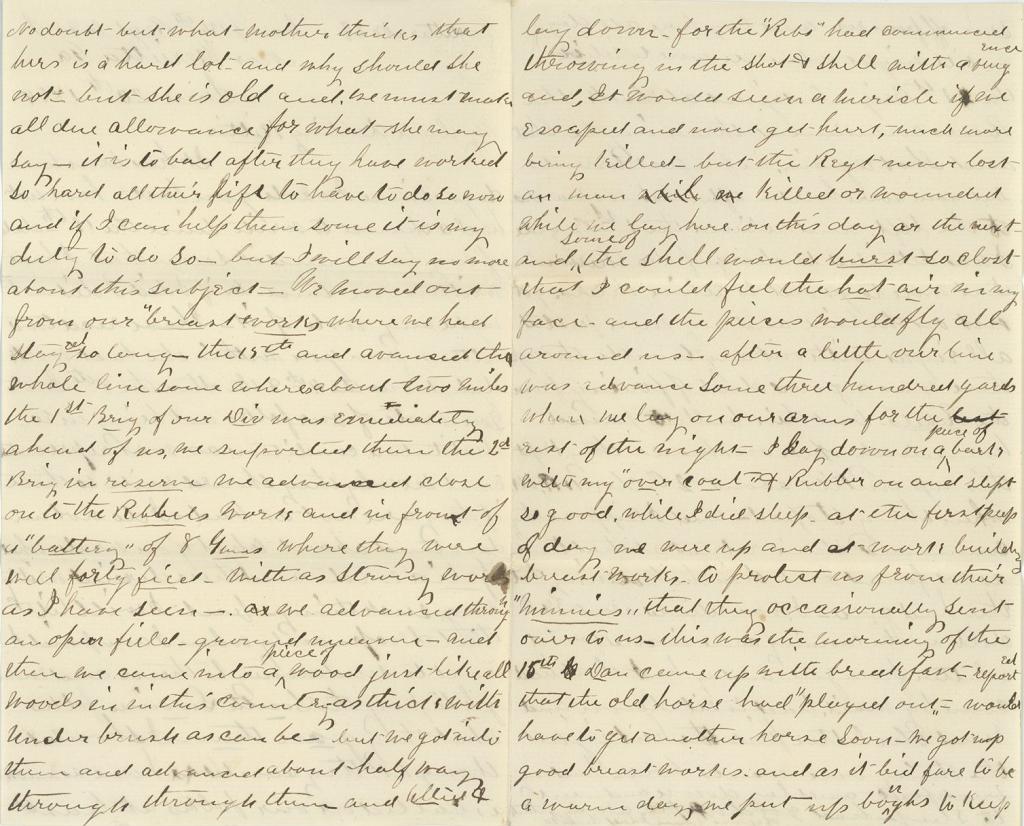 No doubt but what mother thinks that
hers is a hard lot - and why should she
not - but she is old and, we must make
all due allowance for what she may
say - it is to bad after they have worked
so hard all their life to have to do so now
and if I can help them some it is my
duty to do so - but I will say no more
about this subject - We moved out
from our "breast works, where we had
stayed so long - the 15th and avanced the
whole line some where about two miles
the 1st Brig of our Div was emediatety
ahead of us, we suported them the 2d
Brig in reserve we advanced close
on to the Rebbels works and in front of
a "battery" of 8 Guns where they were
well fortyfied - with as strong works
as I have seen - as we advanced through
an open field - ground uneven - and
then we came into a piece of wood just like all
woods in in this country - as thick with
under brush as can be - but we got into
them and advanced about half way
through through them and &
lay down - for the "Rebs" had commenced
throwing in the shot & shell with a vengence
and, It would seem a mericle if we
escaped and none get hurt, much more
being killed - but the Regt never lost
an man while we killed or wounded
while we lay here on this day or the next
and, some of the shell would burst so close
that I could feel the hot air in my
face - and the pieces would fly all
around us - after a little our line
was advance some three hundred yards
when we lay on our arms for the
rest of the night - I lay down on a piece of bark
with my "over coat & Rubber on and slept
so good, while I did sleep. at the first peep
of day we were up and at work building
breast works - to protect us from their
"Minnies" that they occasionally sent
over to us - this was the morning of the
15th Dan came up with breakfast - reported
that the old horse had "played out" - would
have to get another horse soon - we got up
good breast works. and as it bid fare to be
a warm day, we put up boughs to keep